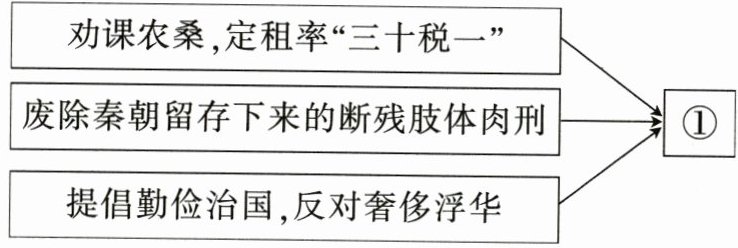 劝课农桑,定租率“三十税一”
废除秦朝留存下来的断残肢体肉刑
①
提倡勤俭治国,反对奢侈浮华